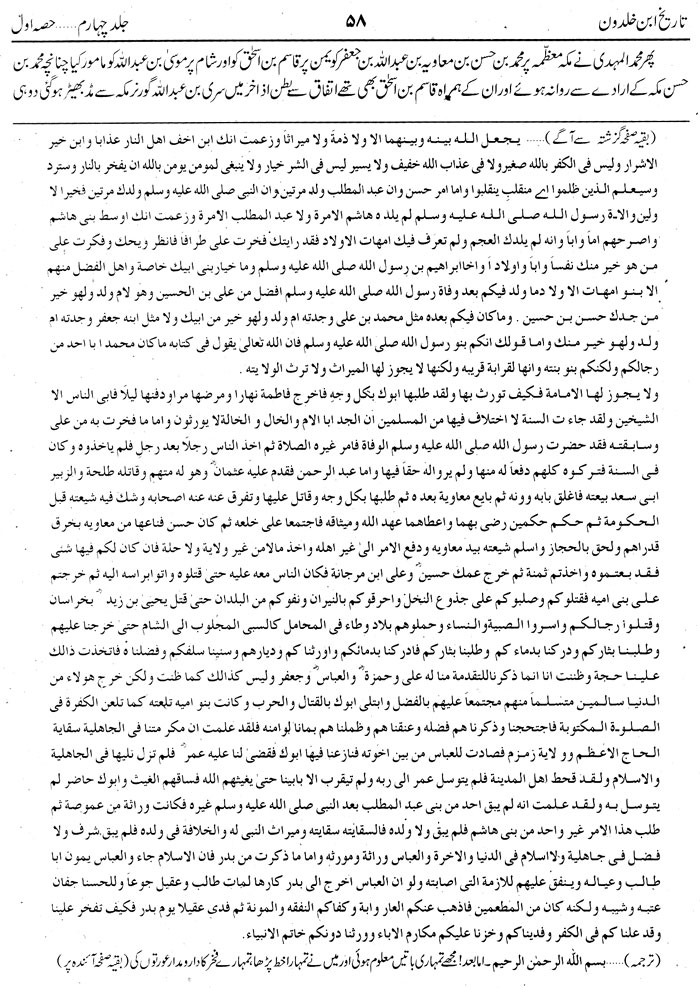 تاریخ ابن خلدون ۵۸ جلد چہارم ...... حصہ اول
پھر محمد المہدی نے مکہ معظمہ پر محمد بن حسن بن معاویہ بن عبداللہ بن جعفر کو یمن پر قاسم بن اسحٰق کو اور شام پر موسیٰ بن عبداللہ کو مامور کیا چنانچہ محمد بن
حسن مکہ کے ارادے سے روانہ ہوئے اور ان کے ہمراہ قاسم بن اسحٰق بھی تھے اتفاق سے بطن اذاخر میں سری بن عبداللہ گورنر مکہ سے مڈبھیڑ ہوگئی دو ہی
(بقیہ صفحہ گزشتہ سے آگے) ...... یجعل الله بینه وبینهما الا ولا ذمة ولا میراثاً وزعمت انك ابن اخف اهل النار عذابا وابن خیر
الاشرار ولیس فی الکفر بالله صغیر ولا فی عذاب الله خفیف ولا یسیر لیس فی الشر خیار ولا ینبغی لمومن یومن بالله ان یفخر بالنار وسترد
وسیعلم الذین ظلموا اے منقلب ینقلبوا واما امر حسن وان عبد المطلب ولد مرتین وان النبی صلی الله علیه وسلم ولدك مرتین فخیرا لا
ولین والاة رسول الله صلی الله علیه وسلم لم یلده هاشم الامرة ولا عبد المطلب الامرة وزعمت انك اوسط بنی هاشم
واصرحهم اماً واباً وانه لم یلدك العجم ولم تعرف فیك امهات الاولاد فقد رایتك فخرت علی طرافا فانظر ویحك وفکرت علی
من هو خیر منك نفساً واباً واولاد ا واخاابراهیم بن رسول الله صلی الله علیه وسلم وما خیاربنی ابیك خاصة واهل الفضل منهم
الا بنو امهات الا ولا دما ولد فیکم بعد وفاة رسول الله صلی الله علیه وسلم افضل من علی بن الحسین وهو لام ولد ولهو خیر
من جدك حسن بن حسین . وماکان فیکم بعده مثل محمد بن علی وجدته ام ولد ولهو خیر من ابیك ولا مثل ابنه جعفر وجدته ام
ولد ولهو خیر منك واما قولك انکم بنو رسول الله صلی الله علیه وسلم فان الله تعالیٰ یقول فی کتابه ماکان محمد ا با احد من
رجالکم ولکنکم بنو بنته وانها لقرابة قریبه ولکنها لا یجوز لها المیراث ولا ترث الولا یته .
ولا یجوز لها الامامة فکیف تورث بها ولقد طلبها ابوك بکل وجهٍ فاخرج فاطمة نهارا ومرضها مراودفنها لیلاً فابی الناس الا
الشیخین ولقد جاءت السنة لا اختلاف فیها من المسلمین ان الجد ابا الام والخال و الخالة لا یورثون واما ما فخرت به من علی
وسابقته فقد حضرت رسول الله صلی الله علیه وسلم الوفاة فامر غیره الصلاة ثم اخذ الناس رجلاً بعد رجل فلم یاخذوه وکان
فی السنة فترکوه کلهم دفعاً له منها ولم یرواله حقاً فیها واما عبد الرحمن فقدم علیه عثمان وهو له متهم وقاتله طلحة والزبیر
ابی سعد بیعته فاغلق بابه وونه ثم بایع معاویة بعده ثم طلبها بکل وجه وقاتل علیها وتفرق عنه عنه اصحابه وشك فیه شیعته قبل
الحکومة ثم حکم حکمین رضی بهما واعطاهما عهد الله ومیثاقه فاجتمعا علی خلعه ثم کان حسن فناعها من معاویه بخرق
قدراهم ولحق بالحجاز واسلم شیعته بید معاویه ودفع الامر الیٰ غیر اهله واخذ مالامن غیر ولایة ولا حلة فان کان لکم فیها شئی
فقد بعتموه واخذتم ثمنة ثم خرج عمك حسین وعلی ابن مرجانة فکان الناس معه علیه حتیٰ قتلوه واتوابراسه الیه ثم خرجتم
علی بنی امیه فقتلوکم وصلبوکم علی جذوع النخل واحرقوکم بالنیران ونفوکم من البلدان حتیٰ قتل یحییٰ بن زید بخراسان
وقتلوا رجالکم واسروا الصبیةوالنساء وحملوهم بلاد وطاء فی المحامل کالسبی المجلوب الی الشام حتیٰ خرجنا علیهم
وطلبنا بثارکم ودرکنا بدماء کم وطلبنا بثارکم فادرکنا بدمائکم واورثنا کم ودیارهم وسنینا سلفکم وفضلنا ه فاتخذت ذالك
علینا حجة وظننت انا انما ذکرناللتقدمة منا له علی وحمزة والعباس وجعفر ولیس کذالك کما ظنت ولکن خرج هولاء من
الدنیا سالمین متسلماً منهم مجتمعاً علیهم بالفضل وابتلی ابوك بالقتال والحرب وکانت بنو امیه تلعنه کما تلعن الکفرة فی
الصلوة المکتوبة فاجتحجنا وذکرنا هم فضله وعنقنا هم وظلمنا هم بمانا لوامنه فلقد علمت ان مکر متنا فی الجاهلیة سقایة
الحاج الاعظم وو لایة زمزم فصادت للعباس من بین اخوته فنازعنا فیها ابوك فقضیٰ لنا علیه عمر فلم تزل نلیها فی الجاهلیة
والاسلام ولقد قحط اهل المدینة فلم یتوسل عمر الی ربه ولم تیقرب الا بابینا حتیٰ یغیثهم الله فساقهم الغیث وابوك حاضر لم
یتوسل به ولقد علمت انه لم یبق احد من بنی عبد المطلب بعد النبی صلی الله علیه وسلم غیره فکانت وراثة من عموصة ثم
طلب هذا الامر غیر واحد من بنی هاشم فلم یبق ولا ولده فالسقایته سقایته ومیراث النبی له والخلافة فی ولده فلم یبق شرف ولا
فضل فی جاهلیة ولااسلام فی الدنیا والاخرة والعباس وراثة ومورثه واما ما ذکرت من بدر فان الاسلام جاء والعباس یمون ابا
طالب وعیاله وینفق علیهم للازمة التی اصابته ولو ان العباس اخرج الی بدر کارها لمات طالب وعقیل جوعاً وللحسنا جفان
عتبه وشیبه ولکنه کان من المطعمین فاذهب عنکم العار وابة وکفاکم النفقه والمونة ثم فدی عقیلا یوم بدر فکیف تفخر علینا
وقد علنا کم فی الکفر وفدیناکم وخزنا علیکم مکارم الاباء وورثنا دونکم خاتم الانبیاء.
(ترجمہ) ...... بسم اللہ الرحمٰن الرحیم۔ اما بعد! مجھے تمہاری باتیں معلوم ہوئی اور میں نے تمہارا خط پڑھا، تمہارے فخر کا دارومدار عورتوں کی (بقیہ صفحہ آئندہ پر)